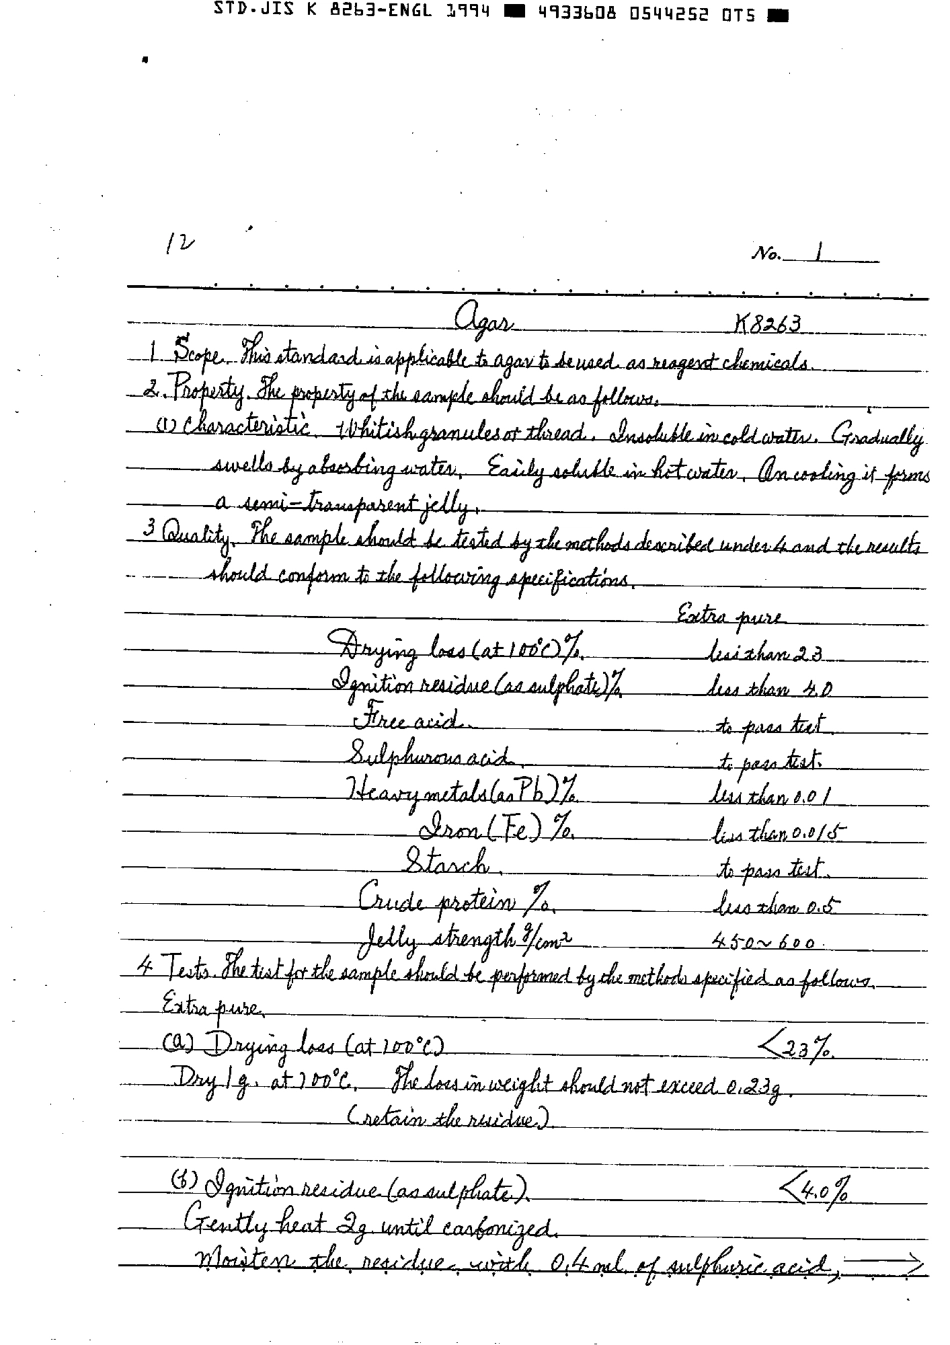 STD.JIS K 8263-ENGL 1994 ■ 4933608 0544252 0T5 ■
12
No. 1
Agar K8263
1 Scope. This standard is applicable to agar to be used as reagent chemicals.
2. Property. The property of the sample should be as follows.
(1) Characteristic. Whitish granules or thread. Insoluble in cold water. Gradually
swells by absorbing water. Easily soluble in hot water. On cooling it forms
a semi-transparent jelly.
3 Quality. The sample should be tested by the methods described under 4 and the results
should conform to the following specifications.
Extra pure
Drying loss (at 100°C) %. less than 23
Ignition residue (as sulphate) % less than 4.0
Free acid. to pass test.
Sulphurous acid. to pass test.
Heavy metals (as Pb) %. less than 0.01
Iron (Fe) %. less than 0.015
Starch. to pass test.
Crude protein %. less than 0.5
Jelly strength g/cm² 450~600.
4 Tests. The test for the sample should be performed by the methods specified as follows.
Extra pure.
(a) Drying loss (at 100°C) <23%.
Dry 1g. at 100°C. The loss in weight should not exceed 0.23g.
(retain the residue.)
(b) Ignition residue (as sulphate). <4.0%
Gently heat 2g. until carbonized.
Moisten the residue with 0.4 ml. of sulphuric acid, →